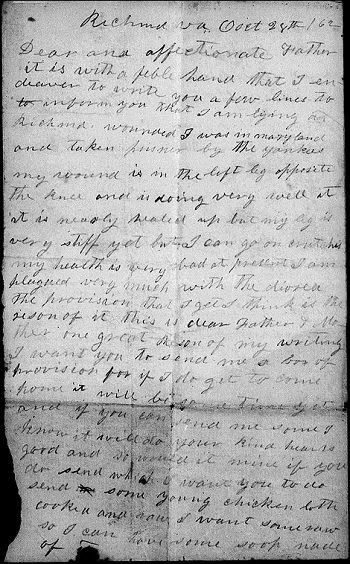 Richmd va Ooct 28th /62
Dear and affectionate Father
it is with a feble hand that I en-
deaver to write you a few lines to
to inform you that I am lying at
Richmd. wounded I was in maryland
and taken prisner by the yankees
my wound is in the left leg opposite
the knee and is doing very well it
it is nearly healed up but my leg is
very stiff yet but I can go on crutches
my health is very bad at present I am
plagued very much with the diorea
the provision that I get I think is the
reson of it this is dear Father & Mo-
ther one great reson of my writing
I want you to send me a box of
provision for if I do get to come
home it will be some time yet
and if you can send me some I
know it will do your kind hearts
good and so would it mine if you
do send which I want you to do
send some young chicken both
cooked and raw I want some raw
so I can have some soop made
of